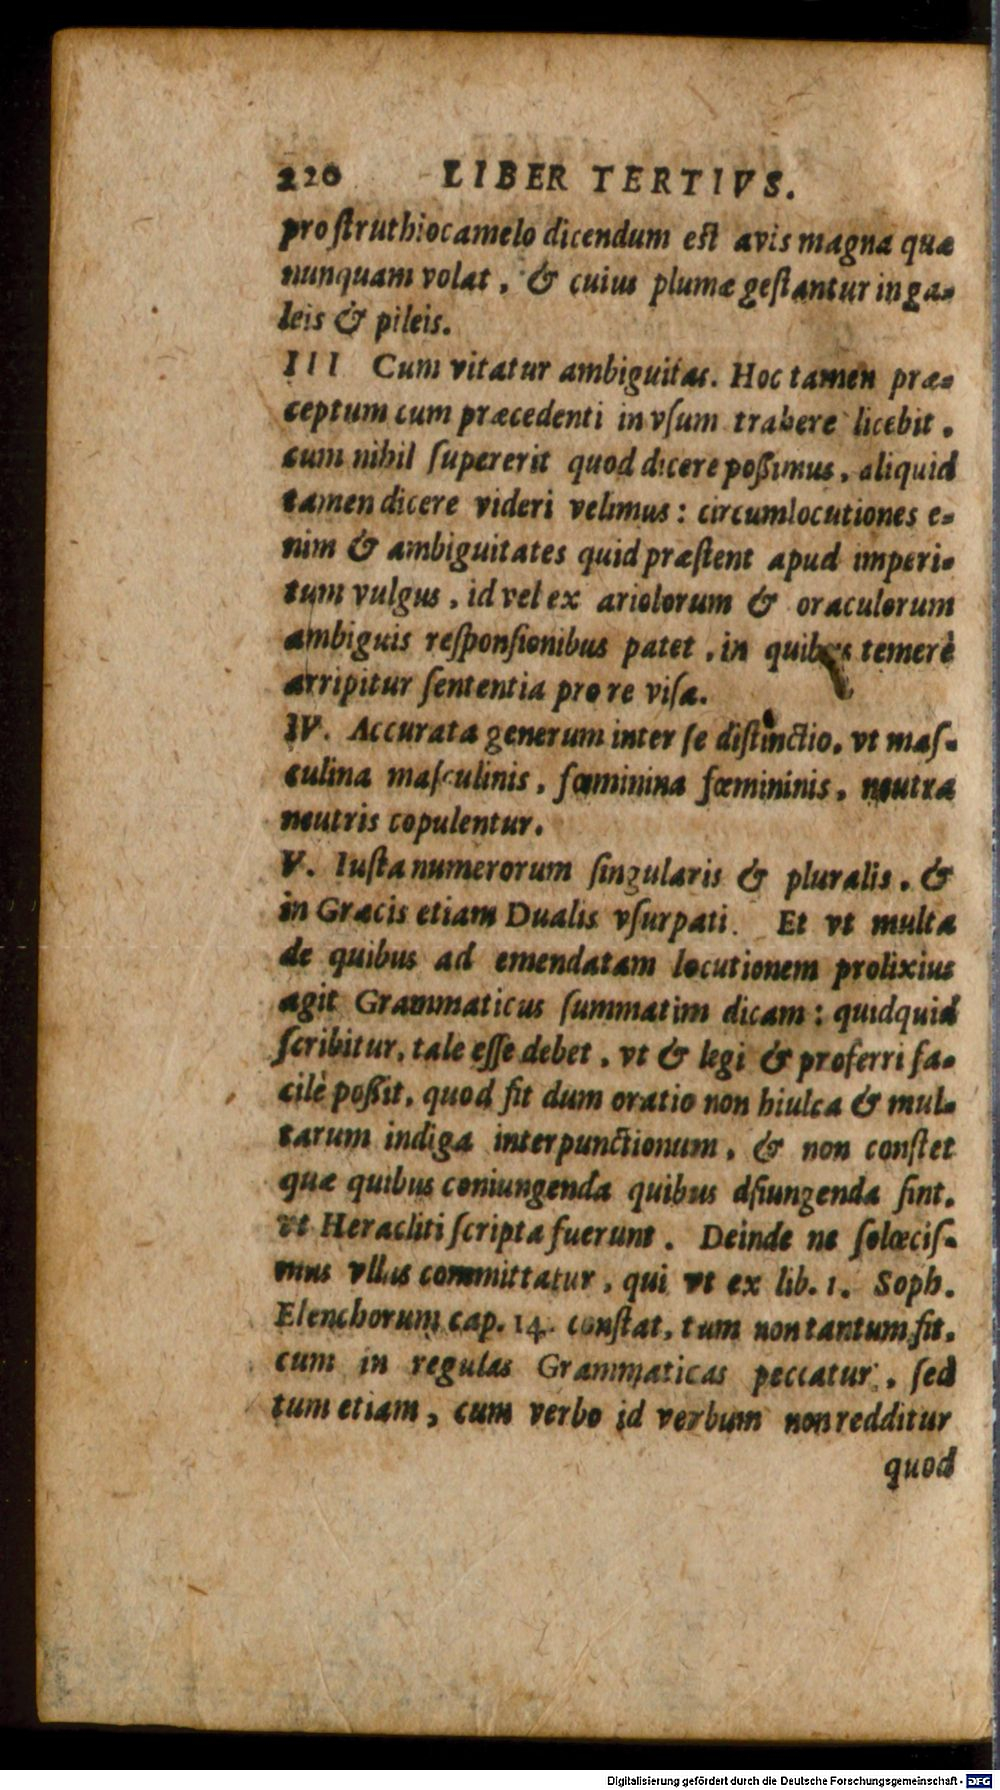 220 LIBER TERTIVS.
pro ſtruthiocamelo dicendum eſt avis magna quæ
nunquam volat, & cuius plumæ geſtantur in ga-
leis & pileis.
III Cum vitatur ambiguitas. Hoc tamen præ-
ceptum cum præcedenti in vſum trahere licebit,
cum nihil ſupererit quod dicere poſſimus, aliquid
tamen dicere videri velimus: circumlocutiones e-
nim & ambiguitates quid præſtent apud imperi-
tum vulgus, id vel ex ariolorum & oraculorum
ambiguis reſponſionibus patet, in quibus temerè
arripitur ſententia pro re viſa.
IV. Accurata generum inter ſe diſtinctio, vt maſ-
culina maſculinis, fœminina fœmininis, neutra
neutris copulentur.
V. Iuſta numerorum ſingularis & pluralis, &
in Græcis etiam Dualis vſurpati. Et vt multa
de quibus ad emendatam locutionem prolixius
agit Grammaticus ſummatim dicam: quidquid
ſcribitur, tale eſſe debet, vt & legi & proferri fa-
cilè poſſit, quod fit dum oratio non hiulca & mul-
tarum indiga interpunctionum, & non conſtet
quæ quibus coniungenda quibus dſiungenda ſint,
vt Heracliti ſcripta fuerunt. Deinde ne ſolœciſ-
mus vllus committatur, qui vt ex lib. 1. Soph.
Elenchorum cap. 14. conſtat, tum non tantum fit,
cum in regulas Grammaticas peccatur, ſed
tum etiam, cum verbo id verbum non redditur
quod
Digitalisierung gefördert durch die Deutsche Forschungsgemeinschaft - DFG